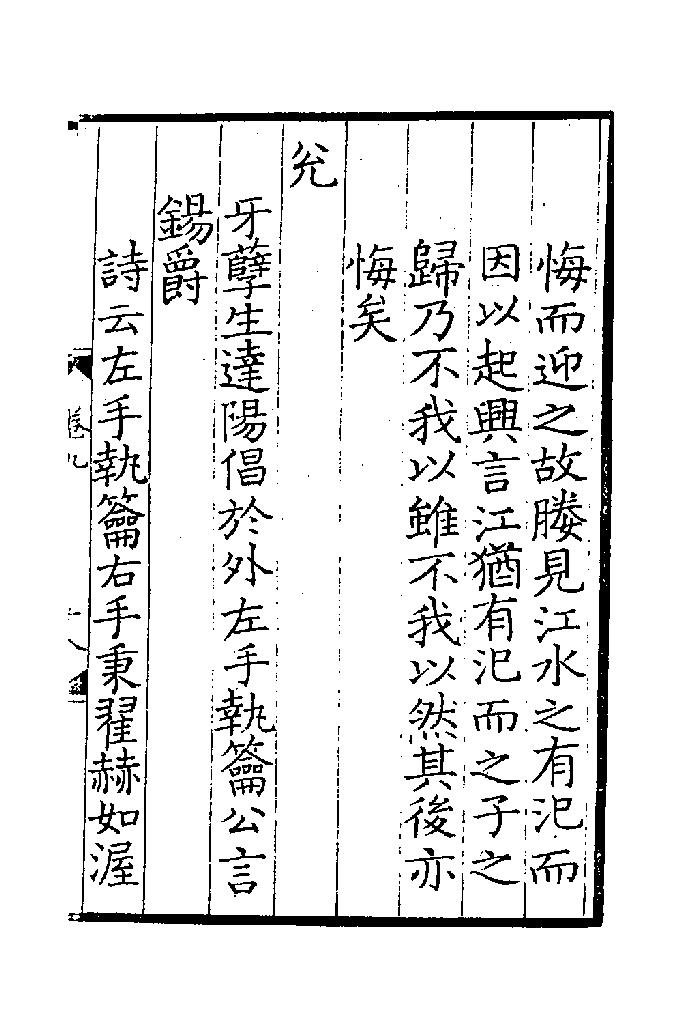 悔而迎之故媵見江水之有汜而
因以起興言江猶有汜而之子之
歸乃不我以雖不我以然其後亦
悔矣
兊
牙孽生達陽倡於外左手執籥公言
錫爵
詩云左手執籥右手秉翟赫如渥
卷九
十八